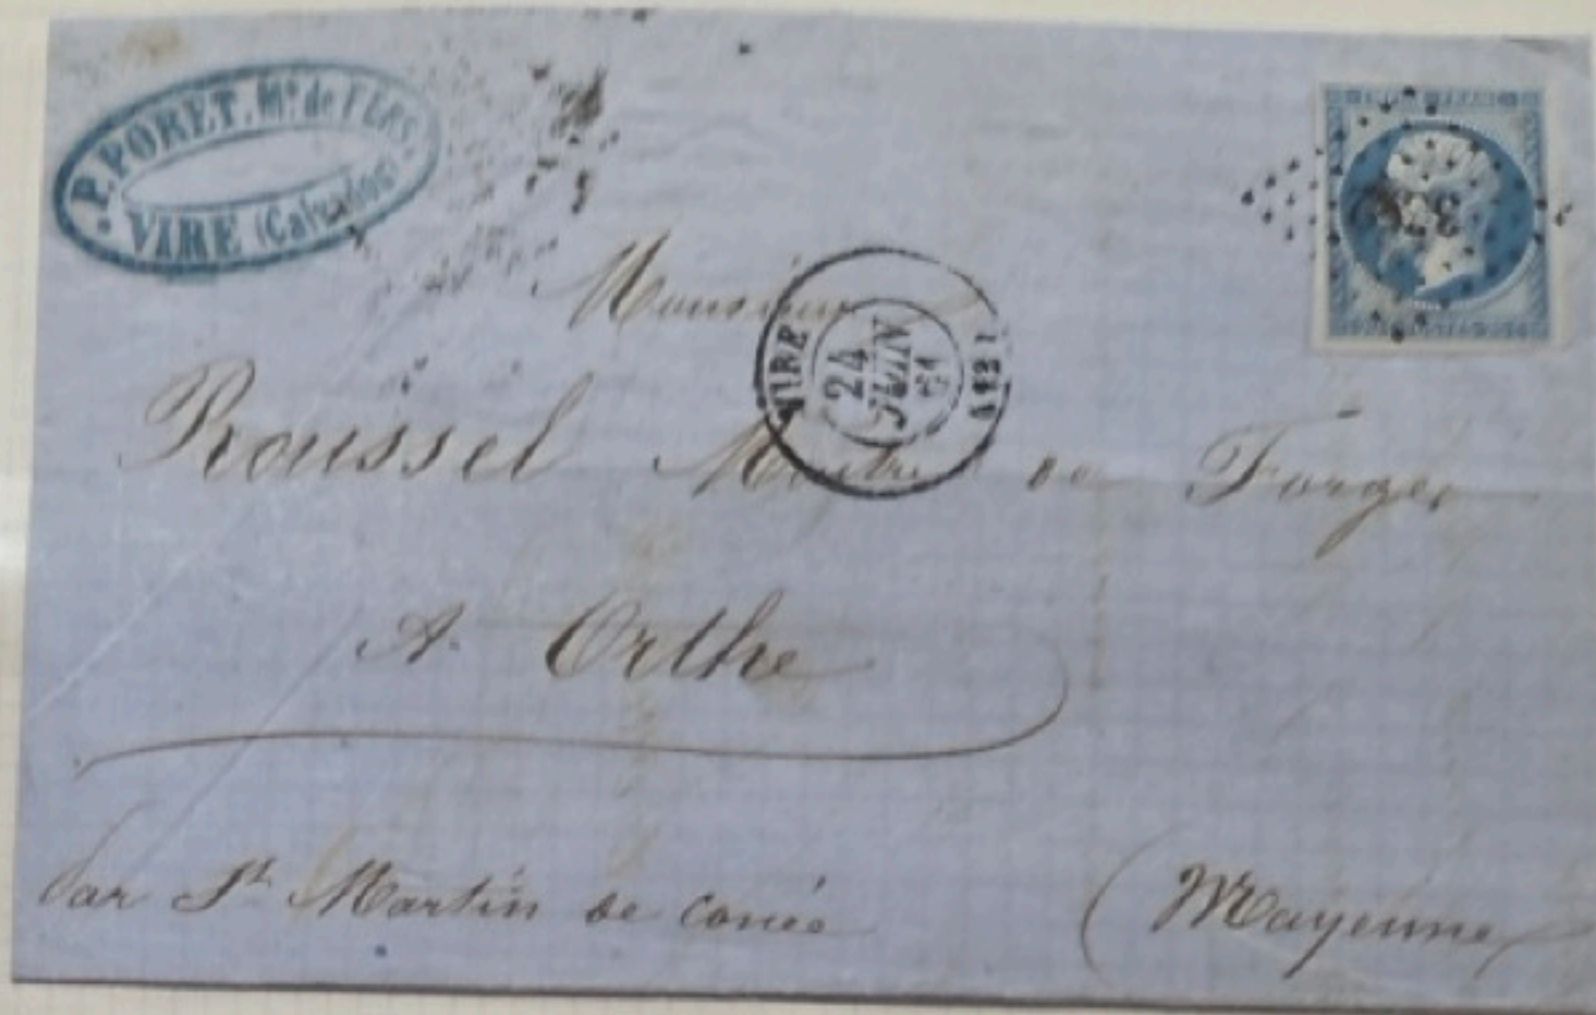 P. PORET. Md. de FERS.
VIRE (Calvados)
Monsieur
VIRE
24
JUIN
61
Roussel Maitre de Forges
A. Orthe
par St Martin de conée
(Mayenne)